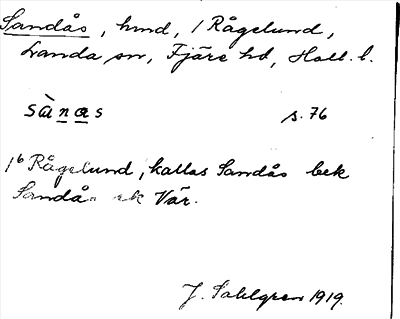 Sandås, hmd, 1 Rågelund,
Landa sn, Fjäre hd, Hall. l.
sànas s. 76
1⁶ Rågelund, kallas Sandås bek
Sandås ek Vär.
J. Sahlgren 1919.